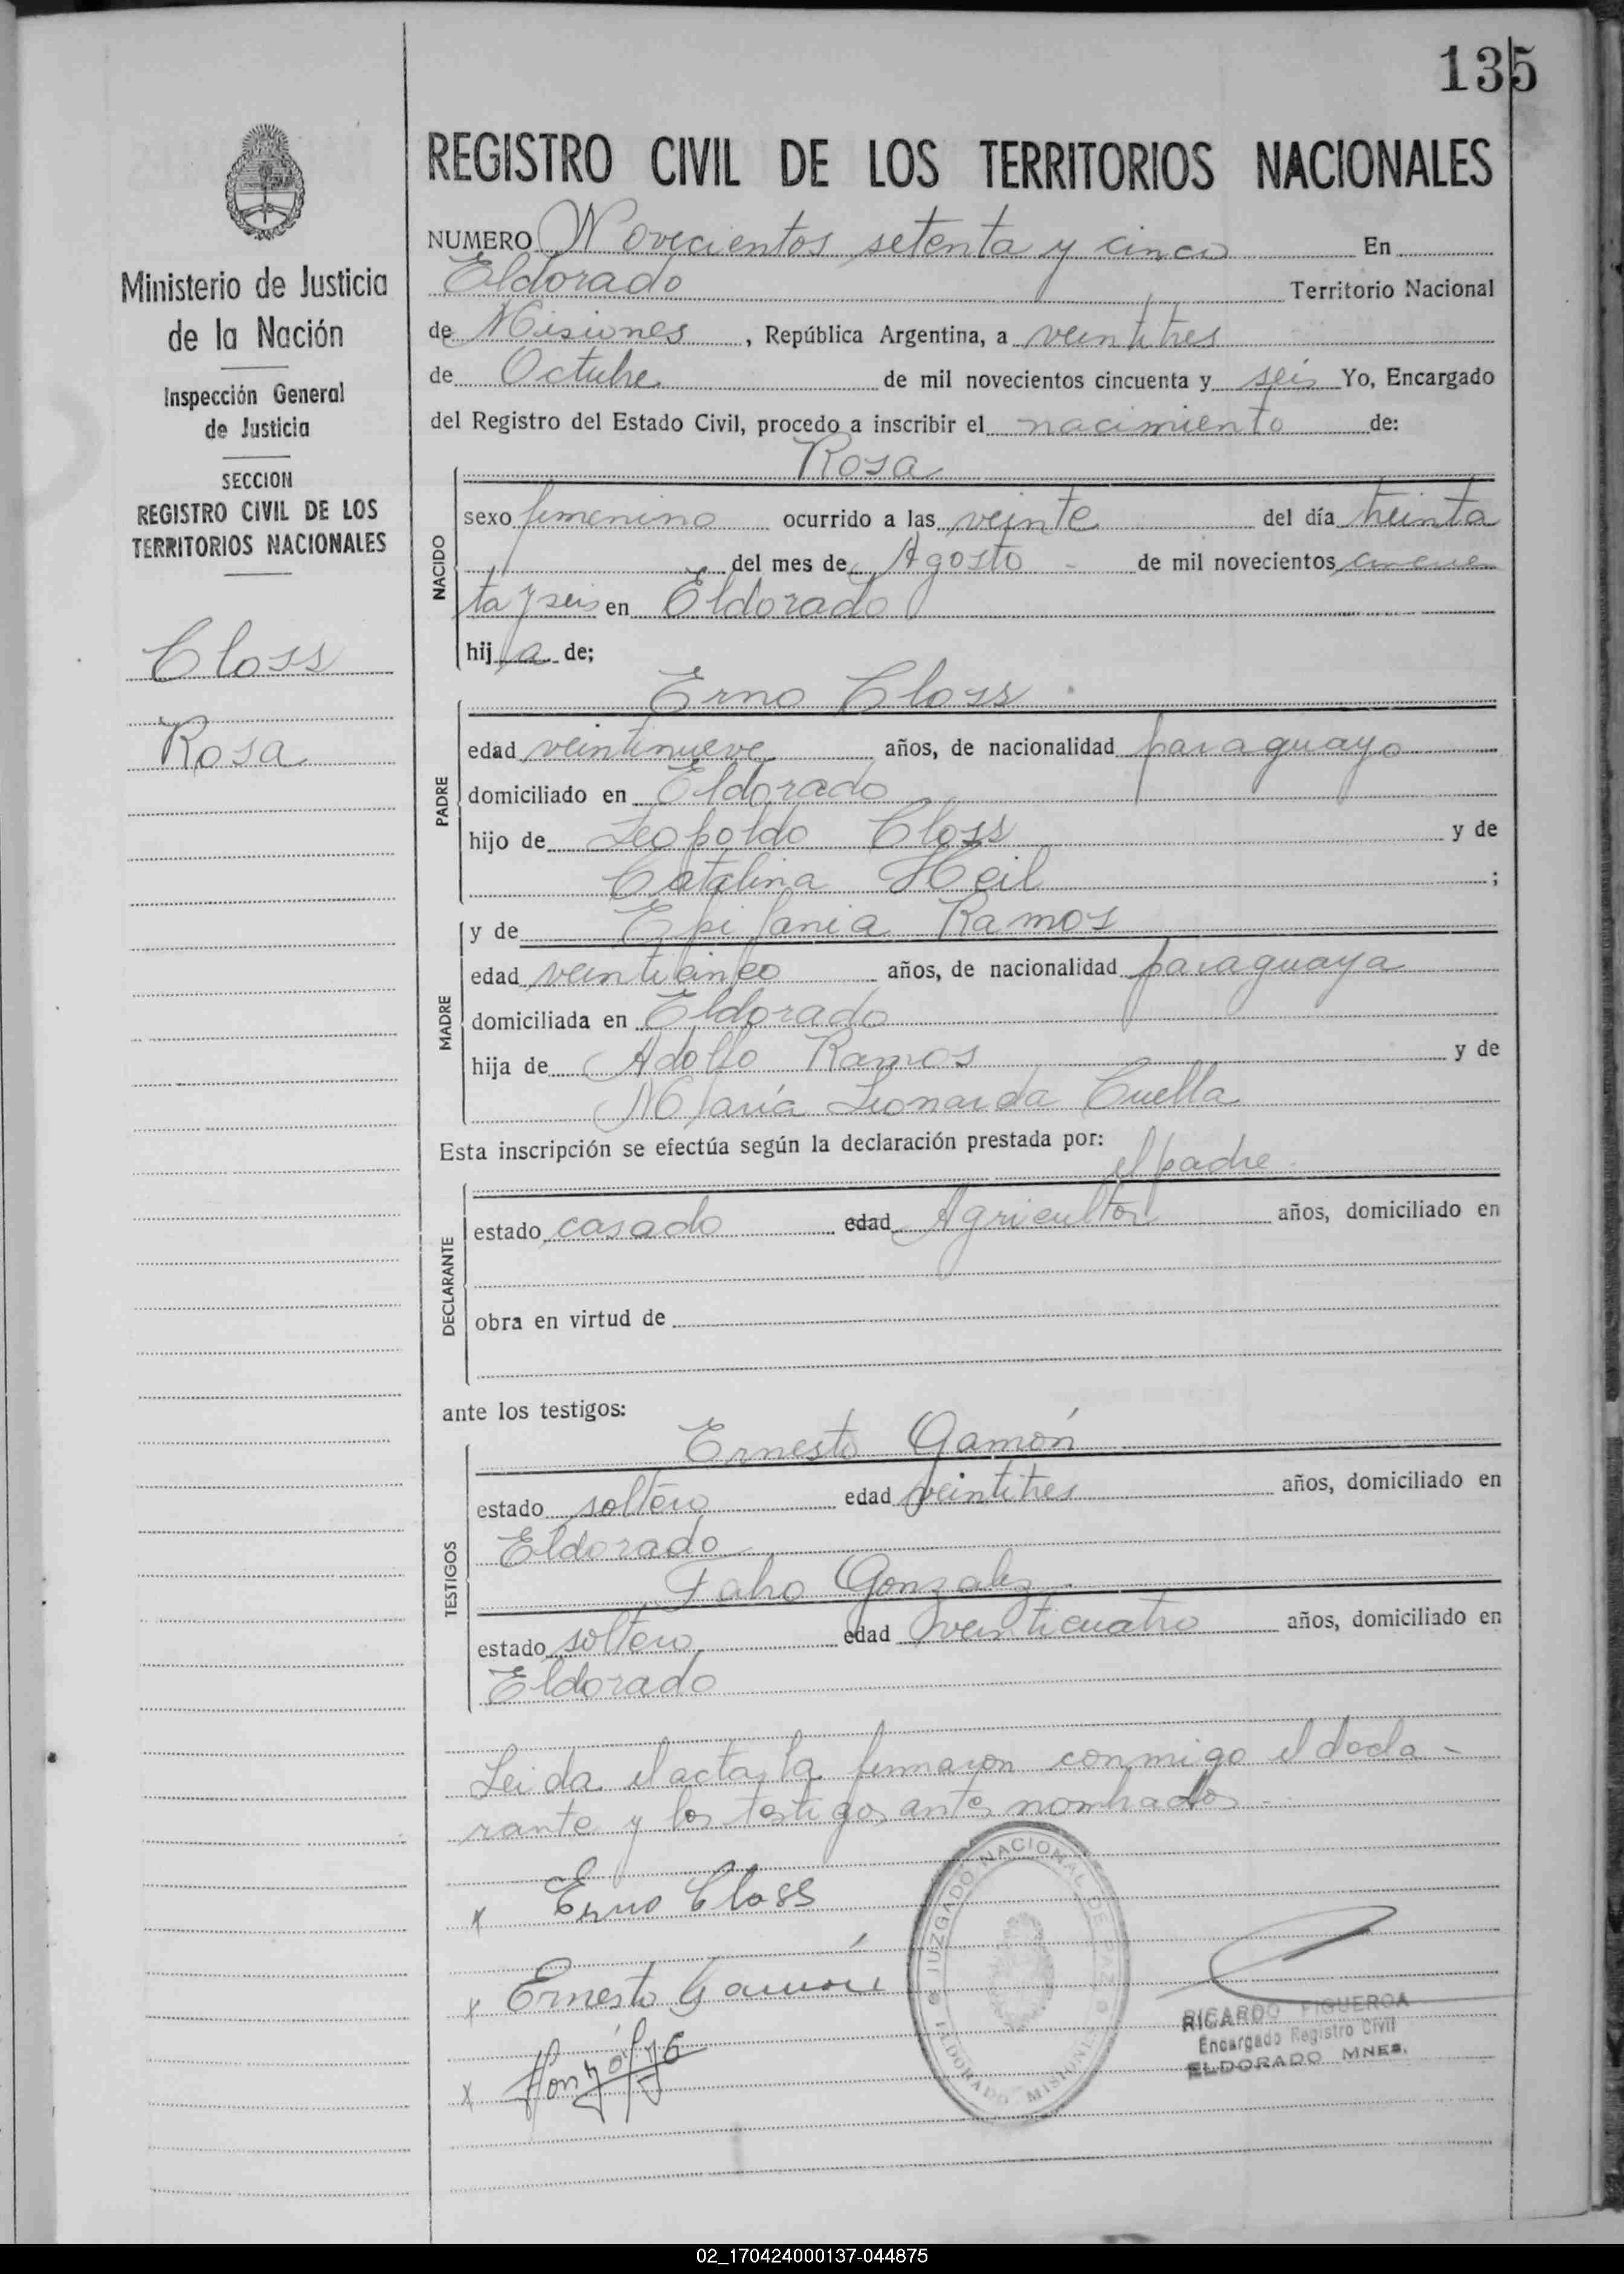 135
REGISTRO CIVIL DE LOS TERRITORIOS NACIONALES
Ministerio de Justicia
de la Nación
Inspección General
de Justicia
SECCION
REGISTRO CIVIL DE LOS
TERRITORIOS NACIONALES
Closs
Rosa
NUMERO Novecientos setenta y cinco En
Eldorado Territorio Nacional
de Misiones, República Argentina, a veintitres
de Octubre de mil novecientos cincuenta y seis Yo, Encargado
del Registro del Estado Civil, procedo a inscribir el nacimiento de:
Rosa
NACIDO
sexo femenino ocurrido a las veinte del día treinta
del mes de Agosto - de mil novecientos cincuen
ta y seis en Eldorado
hij a de;
Erno Closs
PADRE
edad veintinueve años, de nacionalidad paraguayo
domiciliado en Eldorado
hijo de Leopoldo Closs y de
Catalina Heil ;
MADRE
y de Epifania Ramos
edad veinticinco años, de nacionalidad paraguaya
domiciliada en Eldorado
hija de Adolfo Ramos y de
María Leonarda Cuella
Esta inscripción se efectúa según la declaración prestada por:
el padre
DECLARANTE
estado casado edad Agricultor años, domiciliado en
obra en virtud de
ante los testigos:
Ernesto Gamón
TESTIGOS
estado soltero edad veintitres años, domiciliado en
Eldorado
Gonzalez
estado soltero edad veinticuatro años, domiciliado en
Eldorado
Leida el acta, la firmaron conmigo el decla-
rante y los testigos antes nombrados.-
x Erno Closs
x Ernesto Gamón
x
JUZGADO NACIONAL DE PAZ
ELDORADO MISIONES
RICARDO FIGUEROA
Encargado Registro Civil
ELDORADO MNES.
02_170424000137-044875